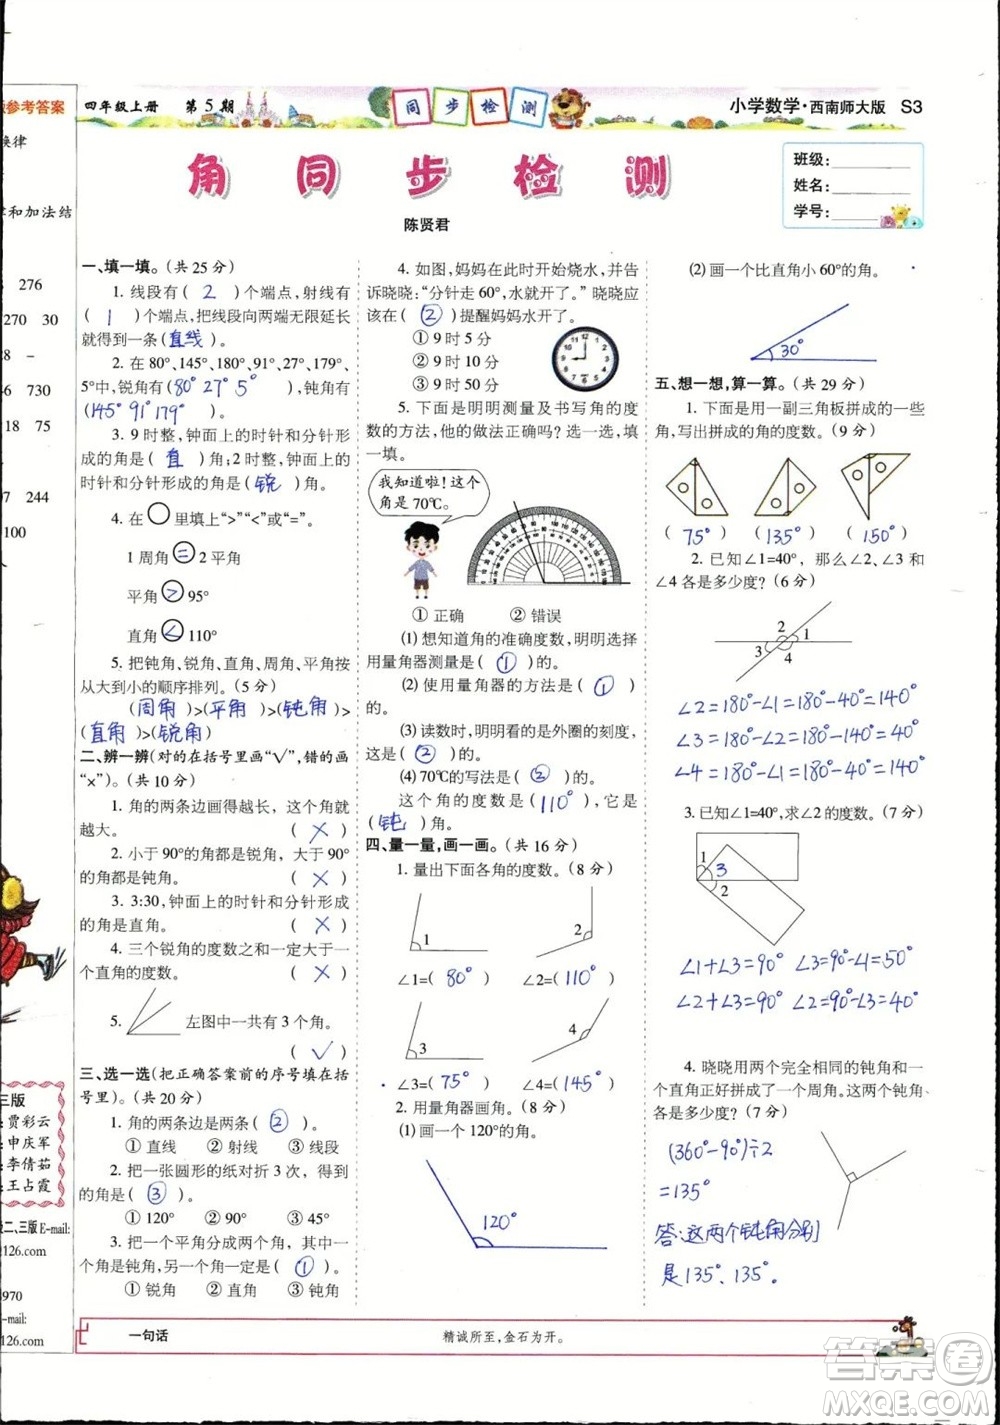 版参考答案
四年级上册 第5期
同步检测
小学数学·西南师大版 S3
角同步检测
班级:
姓名:
学号:
陈贤君
换律
和加法结
276
270 30
730
18 75
244
100
三版
贾彩云
申庆军
李倩茹
王占霞
二、三版E-mail:
126.com
8970
E-mail:
126.com
一、填一填。(共25分)
1. 线段有( 2 )个端点,射线有
( 1 )个端点,把线段向两端无限延长
就得到一条(直线)。
2. 在80°、145°、180°、91°、27°、179°、
5°中,锐角有(80° 27° 5°),钝角有
(145° 91° 179°)。
3. 9时整,钟面上的时针和分针形
成的角是( 直 )角;2时整,钟面上的
时针和分针形成的角是( 锐 )角。
4. 在○里填上“>”“<”或“=”。
1周角=2平角
平角>95°
直角<110°
5. 把钝角、锐角、直角、周角、平角按
从大到小的顺序排列。(5分)
(周角)>(平角)>(钝角)>
(直角)>(锐角)
二、辨一辨(对的在括号里画“√”,错的画
“×”)。(共10分)
1. 角的两条边画得越长,这个角就
越大。 ( × )
2. 小于90°的角都是锐角,大于90°
的角都是钝角。 ( × )
3. 3:30,钟面上的时针和分针形成
的角是直角。 ( × )
4. 三个锐角的度数之和一定大于
一个直角的度数。 ( × )
5. 左图中一共有3个角。
( √ )
三、选一选(把正确答案前的序号填在括
号里)。(共20分)
1. 角的两条边是两条( ② )。
① 直线 ② 射线 ③ 线段
2. 把一张圆形的纸对折3次,得到
的角是( ③ )。
① 120° ② 90° ③ 45°
3. 把一个平角分成两个角,其中一
个角是钝角,另一个角一定是( ① )。
① 锐角 ② 直角 ③ 钝角
4. 如图,妈妈在此时开始烧水,并告
诉晓晓:“分针走60°,水就开了。”晓晓应
该在( ② )提醒妈妈水开了。
① 9时5分
② 9时10分
③ 9时50分
5. 下面是明明测量及书写角的度
数的方法,他的做法正确吗?选一选,填
一填。
我知道啦!这个
角是70℃。
① 正确 ② 错误
(1) 想知道角的准确度数,明明选择
用量角器测量是( ① )的。
(2) 使用量角器的方法是( ① )
的。
(3) 读数时,明明看的是外圈的刻度,
这是( ② )的。
(4) 70℃的写法是( ② )的。
这个角的度数是(110°),它是
( 钝 )角。
四、量一量,画一画。(共16分)
1. 量出下面各角的度数。(8分)
1
2
∠1=( 80° ) ∠2=( 110° )
3
4
∠3=( 75° ) ∠4=( 145° )
2. 用量角器画角。(8分)
(1) 画一个120°的角。
120°
(2) 画一个比直角小60°的角。
30°
五、想一想,算一算。(共29分)
1. 下面是用一副三角板拼成的一些
角,写出拼成的角的度数。(9分)
( 75° ) ( 135° ) ( 150° )
2. 已知∠1=40°,那么∠2、∠3和
∠4各是多少度?(6分)
2
1
3
4
∠2=180°-∠1=180°-40°=140°
∠3=180°-∠2=180°-140°=40°
∠4=180°-∠1=180°-40°=140°
3. 已知∠1=40°,求∠2的度数。(7分)
1
3
2
∠1+∠3=90° ∠3=90°-∠1=50°
∠2+∠3=90° ∠2=90°-∠3=40°
4. 晓晓用两个完全相同的钝角和一
个直角正好拼成了一个周角。这两个钝角
各是多少度?(7分)
(360°-90°)÷2
=135°
答:这两个钝角分别
是135°、135°。
一句话
精诚所至,金石为开。
答案圈
MXQE.COM